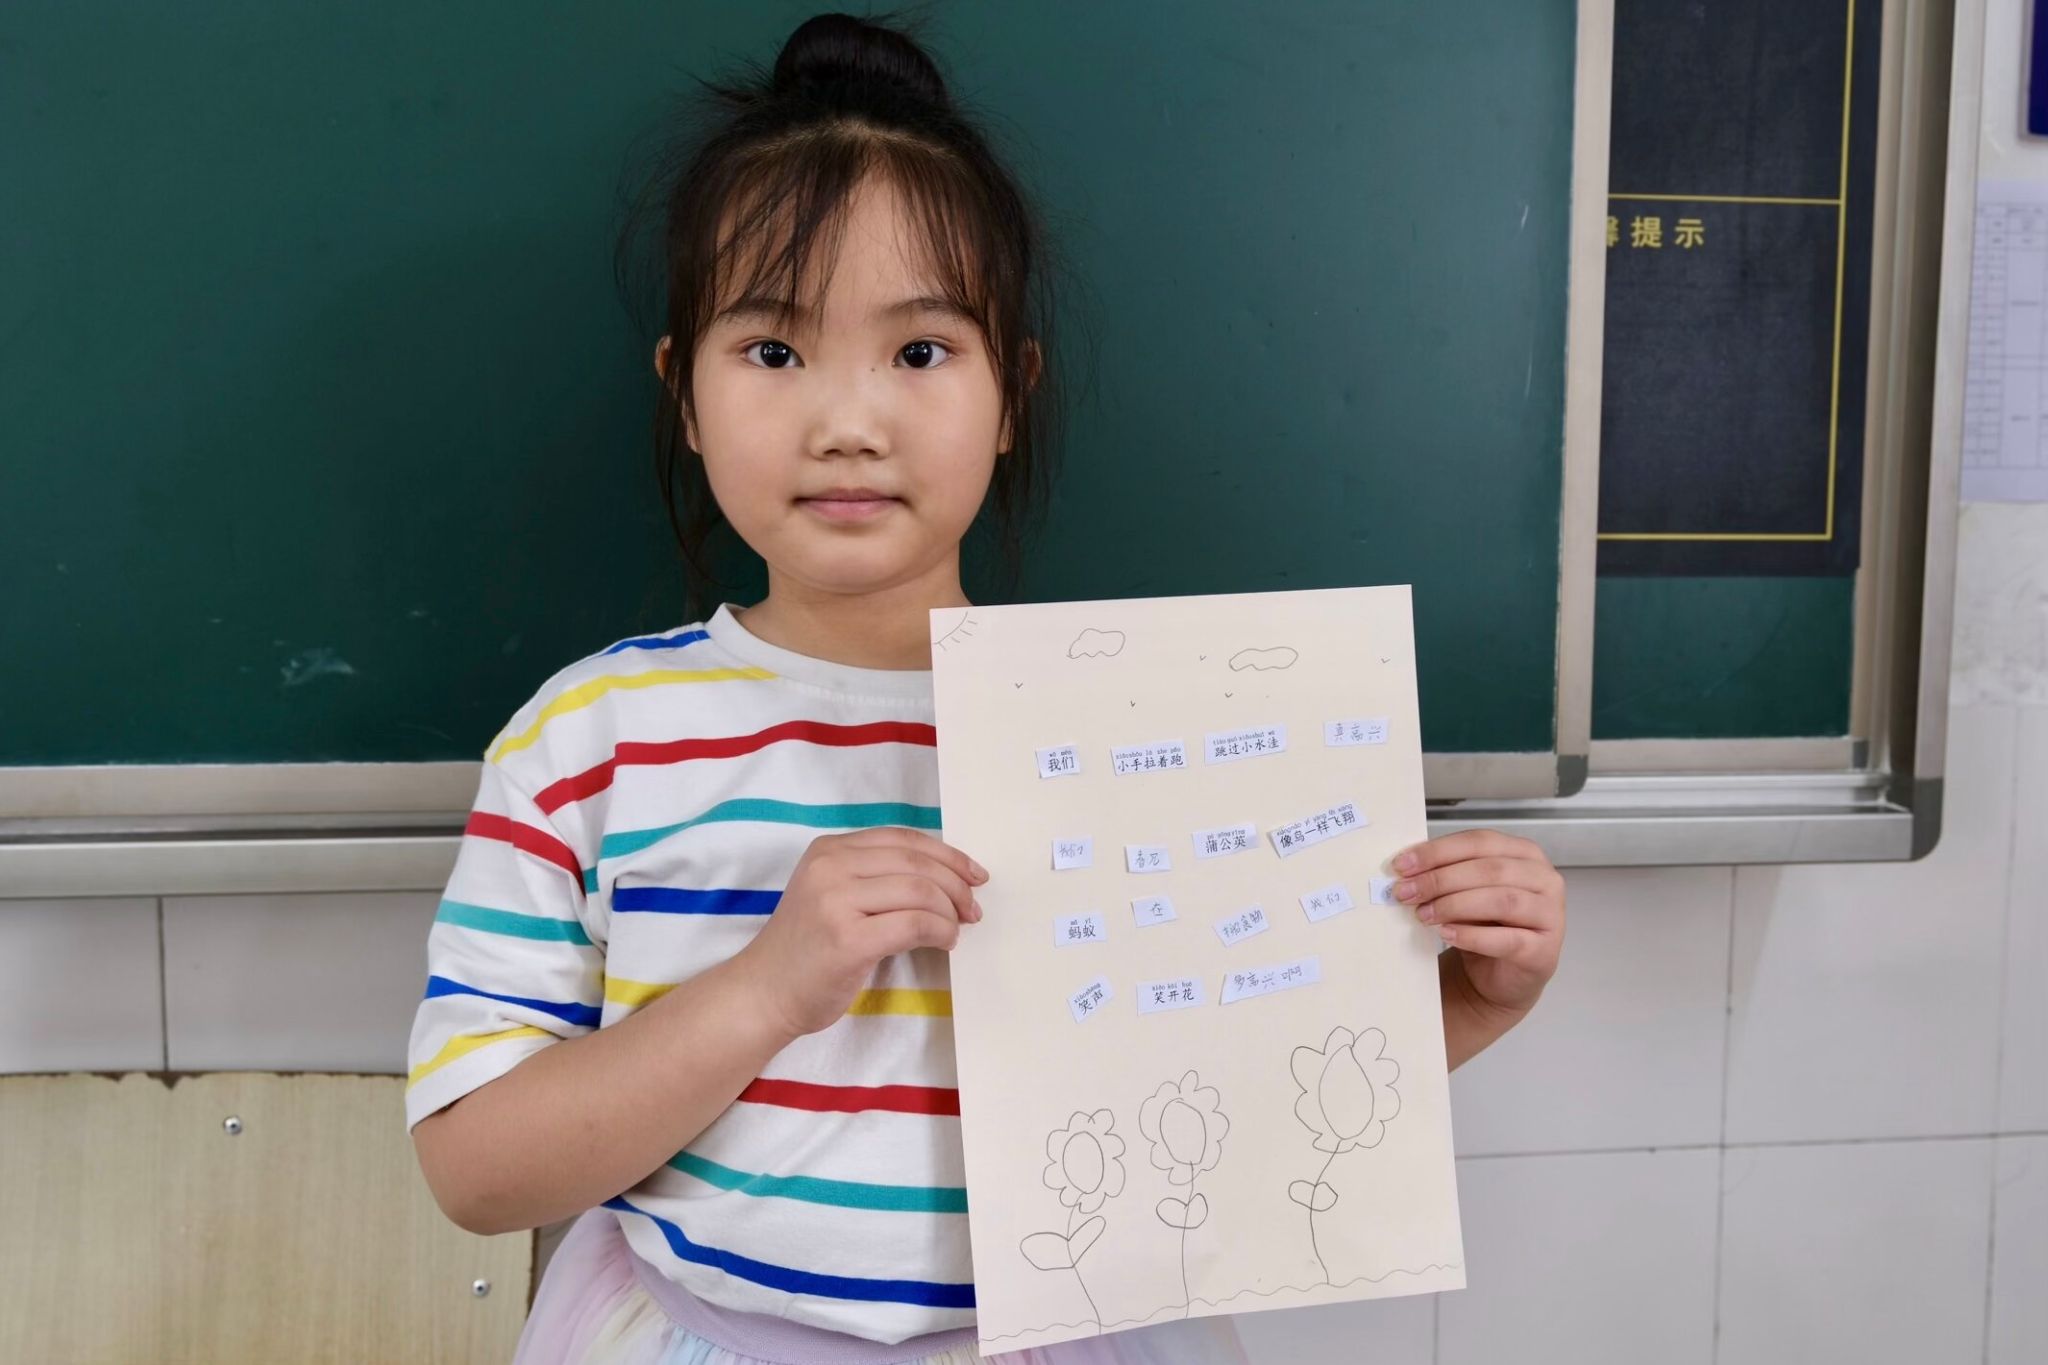 提示
wǒ men
我们
xiǎo shǒu lā zhe pǎo
小手拉着跑
tiào guò xiǎo shuǐ wā
跳过小水洼
真高兴
我们
看见
pú gōng yīng
蒲公英
xiàng niǎo yí yàng fēi xiáng
像鸟一样飞翔
mǎ yǐ
蚂蚁
在
食物
我们
xiào shēng
笑声
xiào kāi huā
笑开花
多高兴啊